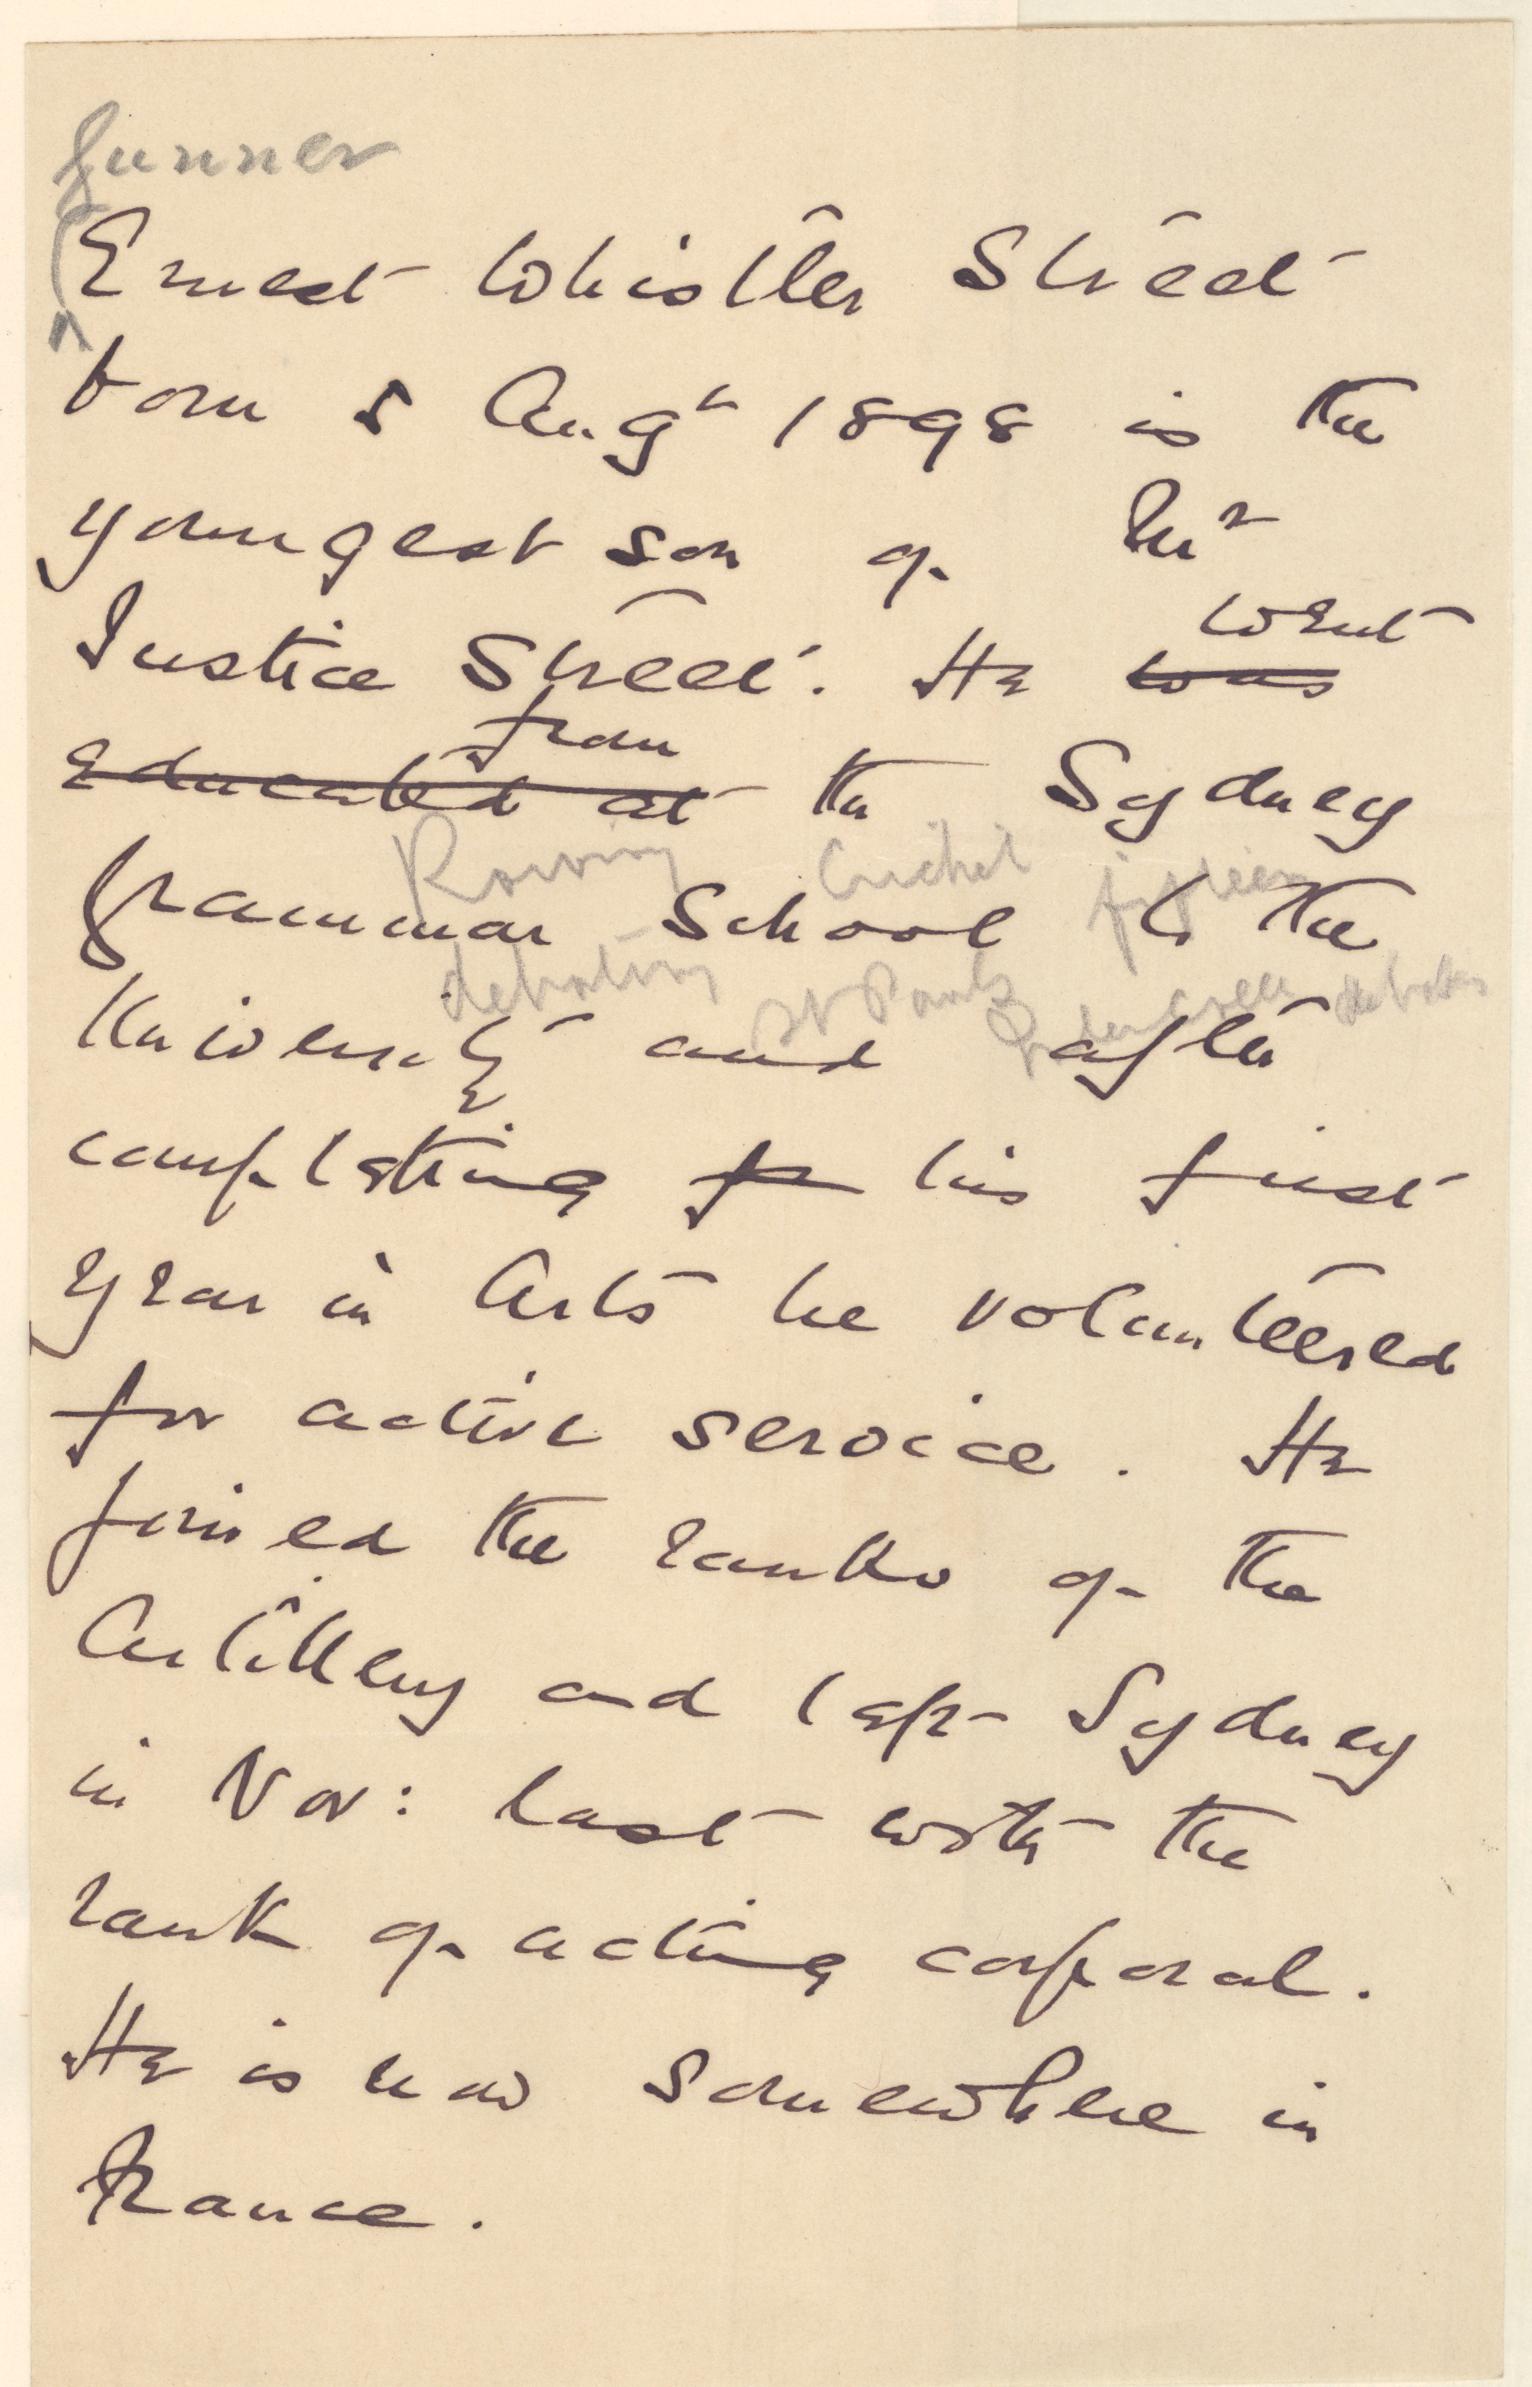 Gunner
Ernest Whistler Street
born 5 Augt 1898 is the
youngest son of Mr
Justice Street. He was went
educated at from the Sydney
Rowing Cricket fifteen
Grammar School to the
debating St Pauls debates
University and after
completing for his first
year in Arts he volunteered
for active service. He
joined the ranks of the
Artillery and left Sydney
in Nov: last with the
rank of acting corporal.
He is now somewhere in
France.